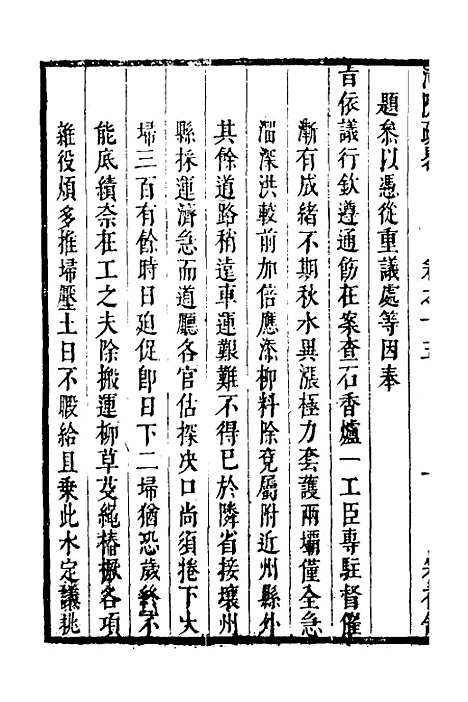 題叅以憑從重議處等因奉
旨依議行欽遵通飭在案查石香爐一工臣專駐督催
漸有成緒不期秋水異漲極力套護兩壩僅全急
溜深洪較前加倍應添柳料除兗屬附近州縣外
其餘道路稍遠車運艱難不得已於隣省接壤州
縣採運濟急而道廳各官估探決口尚須捲下大
埽三百有餘時日廹促卽日下二埽猶恐歲終不
能底績奈在工之夫除搬運柳草茭䋲樁橛各項
雜役煩多推埽壓土日不暇給且乗此水定議挑